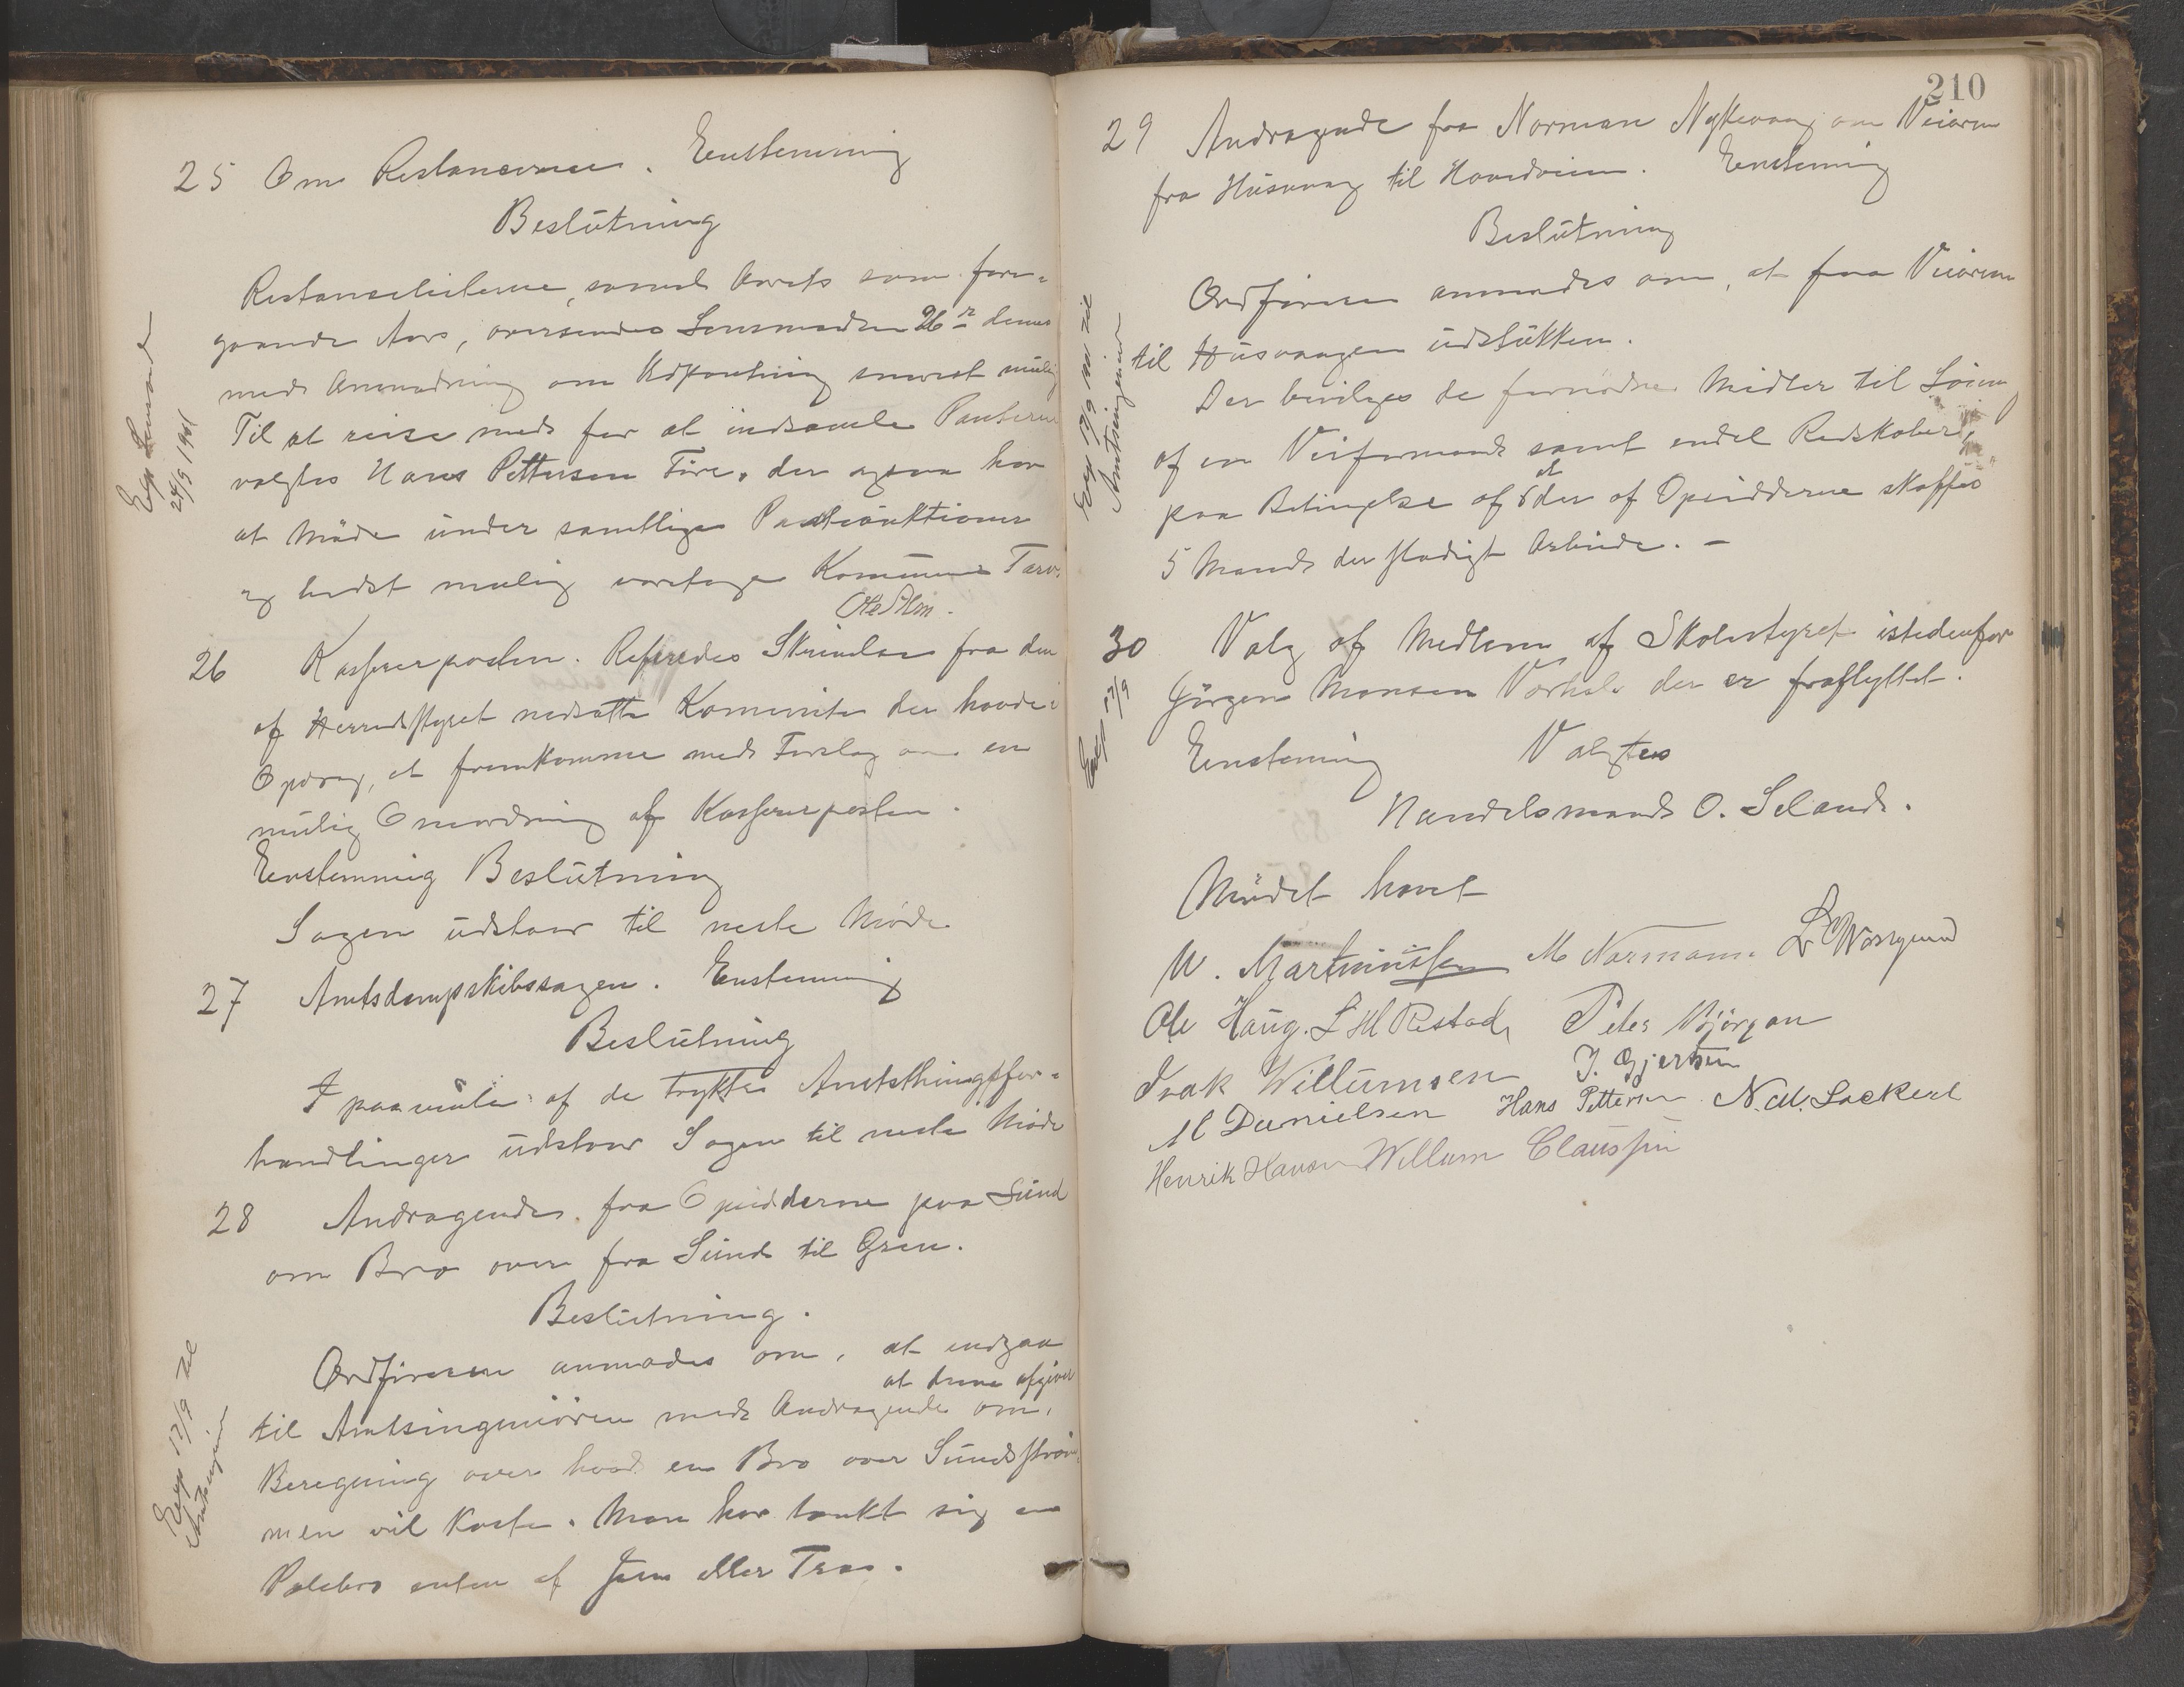 25 Om Restancerne. Eenstemmig
Beslutning
Restancelisterne, saavel Aarets som fore-
gaaende Aars, oversendes Lensmanden 26de dennes
med Anmodning om Udpantning snarest mulig
Til at reise med for at indsamle Panterne
valgtes Hans Pettersen Füre, der ogsaa har
at møde under samtlige Panteauktioner
og bedst mulig varetage Kommunens Tarv.
Exp Lensmand
24/9 1901
Ole Alm.
26 Kassererposten. Refereredes Skrivelse fra den
af Herredsstyret nedsatte Kommite der havde i
Opdrag, at fremkomme med Forslag om en
mulig Omordning af Kassererposten.
Eenstemmig Beslutning
Sagen udstaar til neste Møde
27 Amtsdampskibssagen. Enstemmig
Beslutning
I paavente af de trykte Amtsthingsfor-
handlinger udstaar Sagen til neste Møde
28 Andragende fra Opsidderne paa Sund
om Bro over fra Sund til Øren.
Beslutning.
Ordføreren anmodes om, at indgaa
til Amtsingeniøren med Andragende om, at denne afgiver
Beregning over hvad en Bro over Sundstrøm
men vil koste. Man har tænkt sig en
Pælebro enten af Jern eller Træ.
Exp 17/9 til
Amtsingeniør
210
29 Andragende fra Norman Nykvaag om Veiarm
fra Husvaag til Hovedveien. Eenstemmig
Beslutning
Ordføreren anmodes om, at faa Veiarmen
til Husvaagen udstukken.
Der bevilges de fornødne Midler til Løn
af en Veiformand samt endel Redskaber,
paa Betingelse af at der af Opsidderne skaffes
5 Mand der stadigt Arbeide. -
Exp 17/9 01 til
Amtsingeniør
30 Valg af Medlem af Skolestyret istedenfor
Jørgen Monsen Vorhals der er fraflyttet.
Eenstemmig Valgtes
Handelsmand O. Seland.
Exp 17/9
Mødet hævet
W. Martinussen M Normann L
Ole Haug. L H Ristad, Peter Bjørgan
Isak Willumsen J. Gjertsen
M Danielsen Hans Pettersen N. M. Lockert
Henrik Hansen Willum Claussen